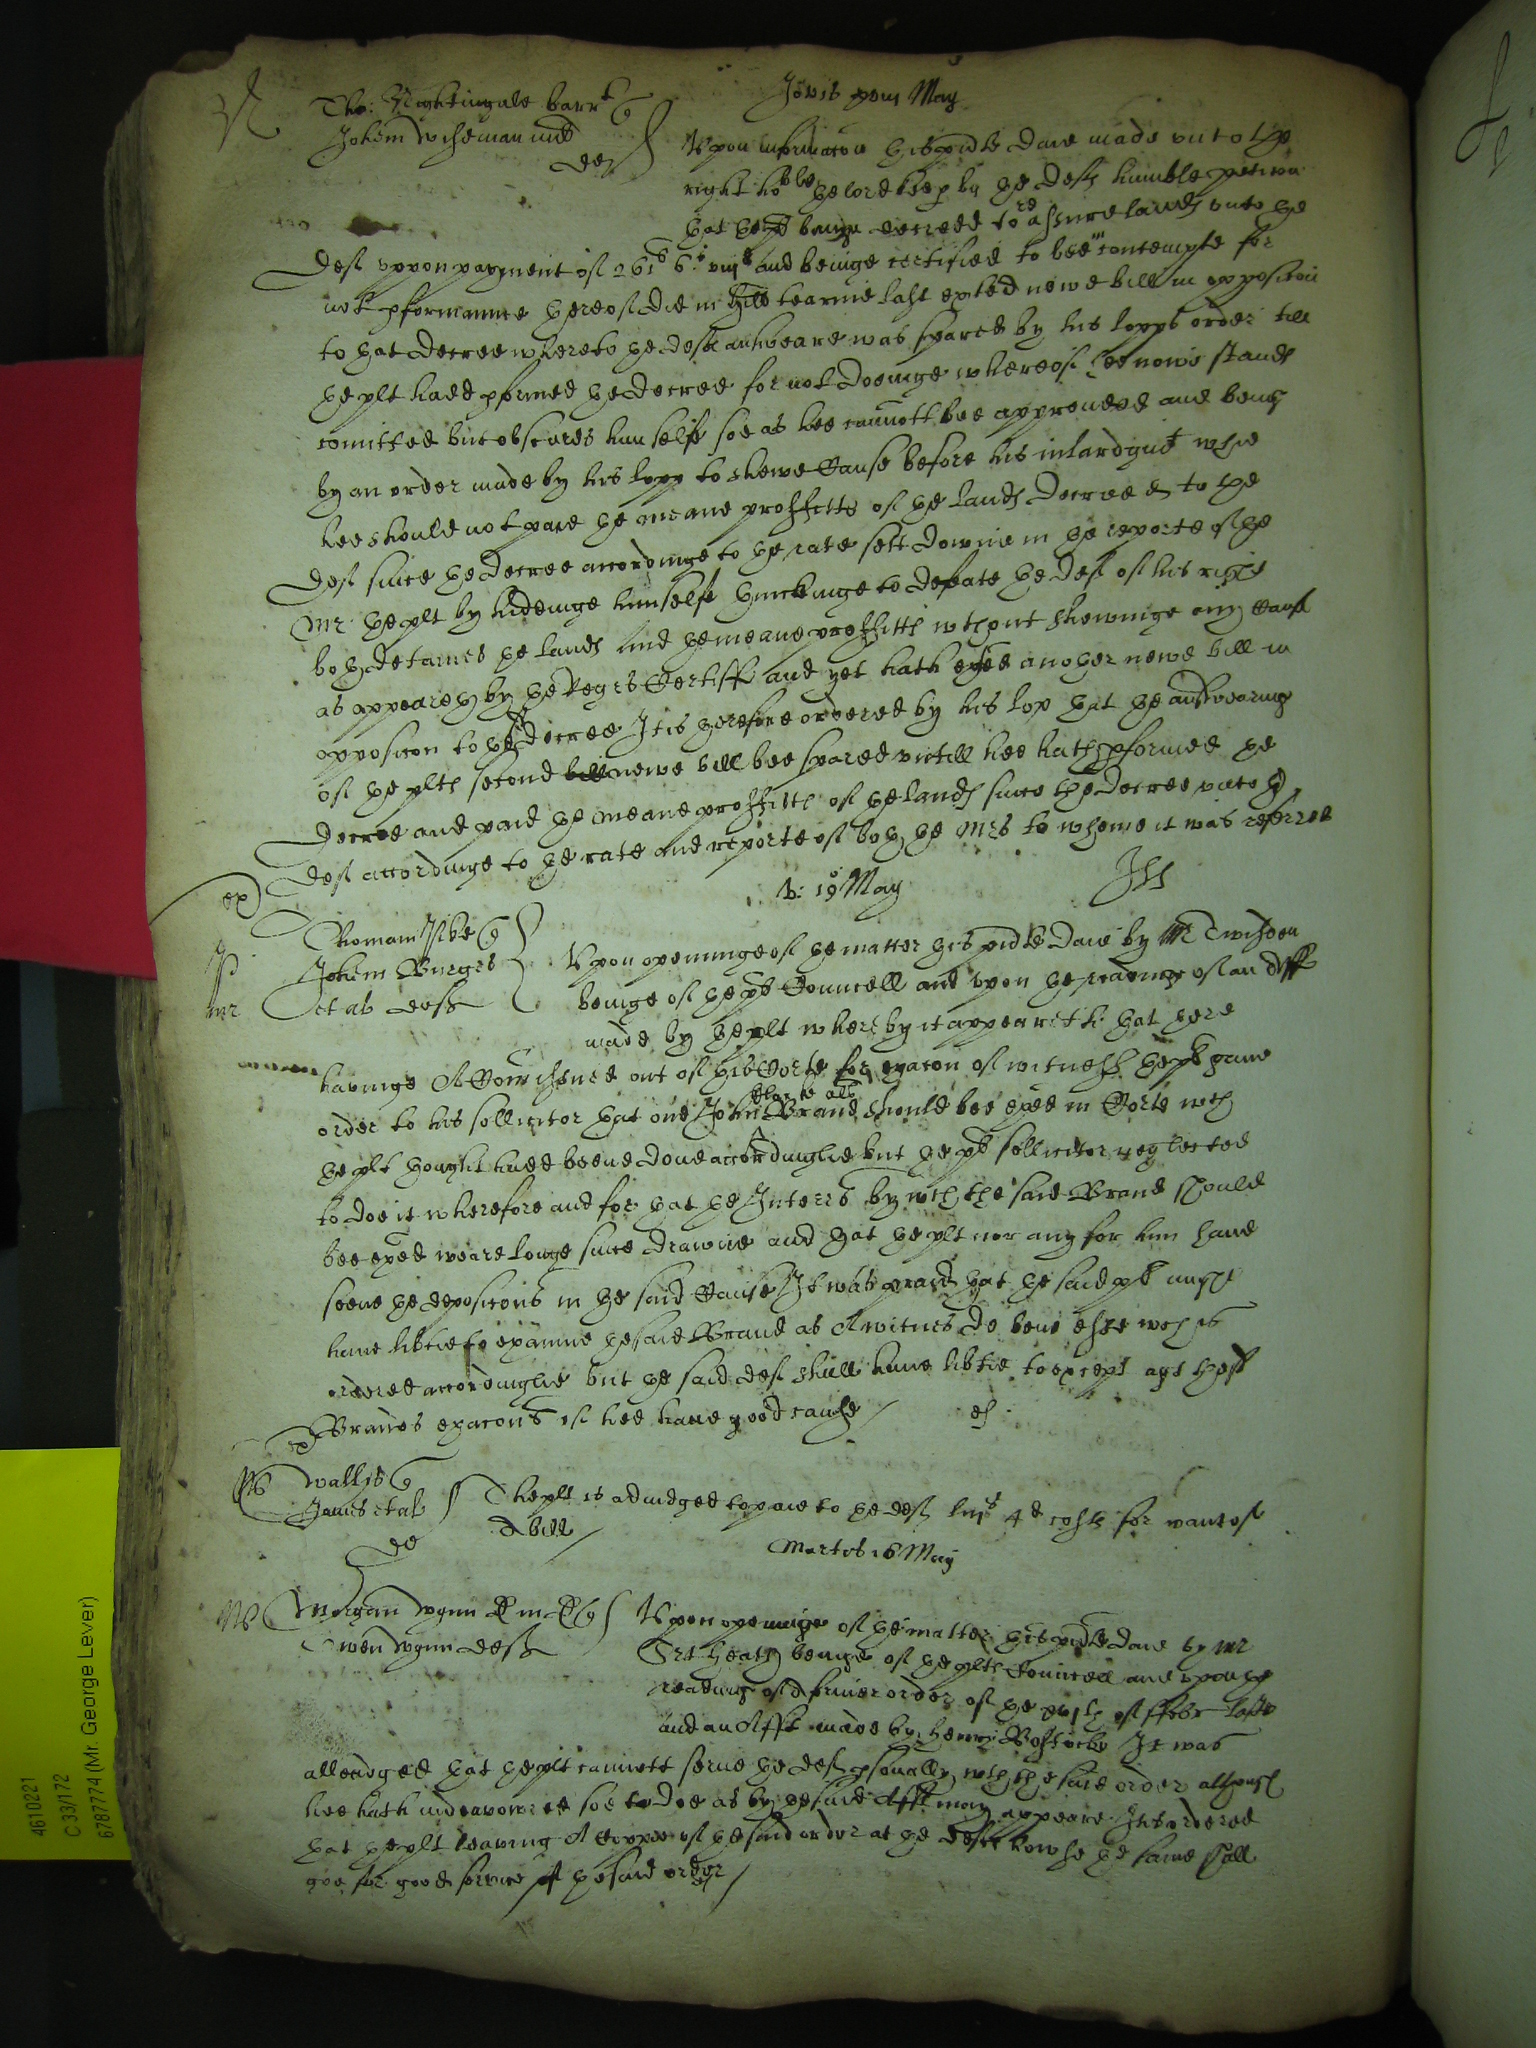 Jovis May
Tho: Nightingale barrt
Johem Wiseman
def
Upon informacon this pnte daie made unto the
right hoble the lord keep by the defts humble peticon
that the beinge decreed to assure lands unto the
deft uppon payment of 261 6 and beinge certified to bee in contempte for
not pformance thereof did in Hill tearme last exhibited newe bill in opposicon
to that decree whereto the defts answeare was spared by his lopps order till
the plt hadd pformed the decree for not doeinge whereof hee nowe stands
comitted but obscures himselfe soe as hee cannott bee apprended and beinge
by an order made by his lopp to shewe Cause before his inlardgmt whie
hee should not paie the meane proffitts of the lands decreed to the
deft since the decree accordinge to the rate sett downe in the reporte of the
Mr the plt by hideinge himselfe thinckinge to defeate the deft of his right
both detaines the lands and the meane proffitts wthout shewinge any Cause
as appeareth by the Regrs Certiff and yet hath another newe bill in
opposicon to the decree It is therefore ordered by his lop that the answearing
of the plts second newe bill bee spared untill hee hath pformed the
decree and paid the meane proffitts of the lands since the decree unto the
deft accordinge to the rate and reporte of both the Mrs to whome it was referred
19 May
Johem Burges
et al defts
Upon openinge of the matter this pnte daie by Mr Twisden
beinge of the plts Councell and upon the readinge of an Afft
made by the plt whereby it appeareth that there
havinge A Comission out of this Corte for exacon of witnesses the plt gave
order to his sollicitor that one John Clarke als Brand should bee exed in Corte wch
the plt thought hadd beene done accordinglie but the plts sollicitor neglected
to doe it wherefore and for that the Interrs by wch the said Brand should
bee exed weare longe since drawne and that the plt nor any for him have
seene the deposicons in the said Cause It was praied that the said plt might
have libtie to examine the said Brand as A witnes de bene esse wch is
ordered accordinglie but the said deft shall have libtie to except agt the
Brands exacons if hee have good cause
Wallis
Janes et al
def
The plt is adiudged to paie to the deft 4d costs for want of
A bill
Martis 16 May
Morgan Wynn
Owen Wynn defts
Upon openinge of the matter this pnte daie by Mr
Srt Heath beinge of the plts Councell and upon the
readinge of A former order of the of Febr last
and an Afft made by Henry Bostocke It was
alleadged that the plt cannott serve the deft psonally wth the said order althoughe
hee hath indeavoured soe to doe as by the said Afft may appeare It is ordered
that the plt leaving A Coppie of the said order at the defts howse the same shall
goe for good service of the said order
4610221
C 33/172
6787774 (Mr. George Lever)